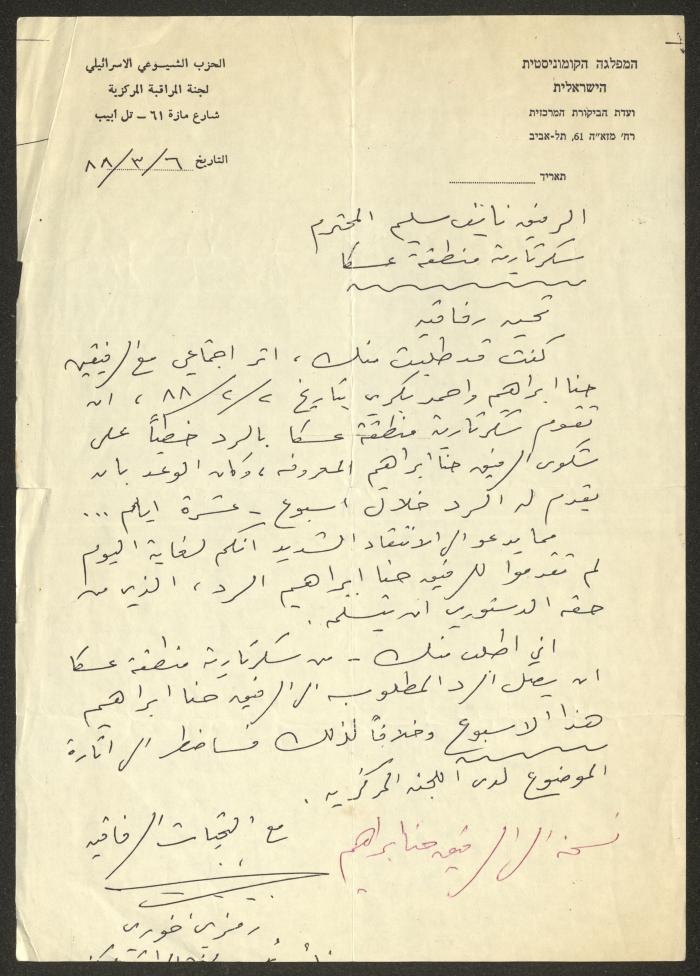 המפלגה הקומוניסטית
הישראלית
ועדת הביקורת המרכזית
רח' מזא"ה 61, תל-אביב
תאריך
الحزب الشيوعي الاسرائيلي
لجنة المراقبة المركزية
شارع مازة ٦١ – تل أبيب
التاريخ ٦/٣/٨٨
الرفيق نايف سليم المحترم
سكرتارية منطقة عكا
تحية رفاقية
كنت قد طلبت منك ، اثر اجتماعي مع الرفيقين
حنا ابراهيم واحمد بكري بتاريخ ٢/٢/٨٨ ، ان
تقوم سكرتارية منطقة عكا بالرد خطياً على
شكوى الرفيق حنا ابراهيم المعروفه ، وكان الوعد بان
يقدم له الرد خلال اسبوع - عشرة ايام ...
مما يدعو الى الانتقاد الشديد انكم لغاية اليوم
لم تقدموا للرفيق حنا ابراهيم الرد ، الذي من
حقه الدستوري ان يتسلمه .
اني اطلب منك - من سكرتارية منطقة عكا
ان يصل الرد المطلوب الى الرفيق حنا ابراهيم
هذا الاسبوع وخلافاً لذلك فسأضطر الى اثارة
الموضوع لدى اللجنه المركزيه .
مع التحيات الرفاقيه
نسخه الى الرفيق حنا ابراهيم
رمزي خوري